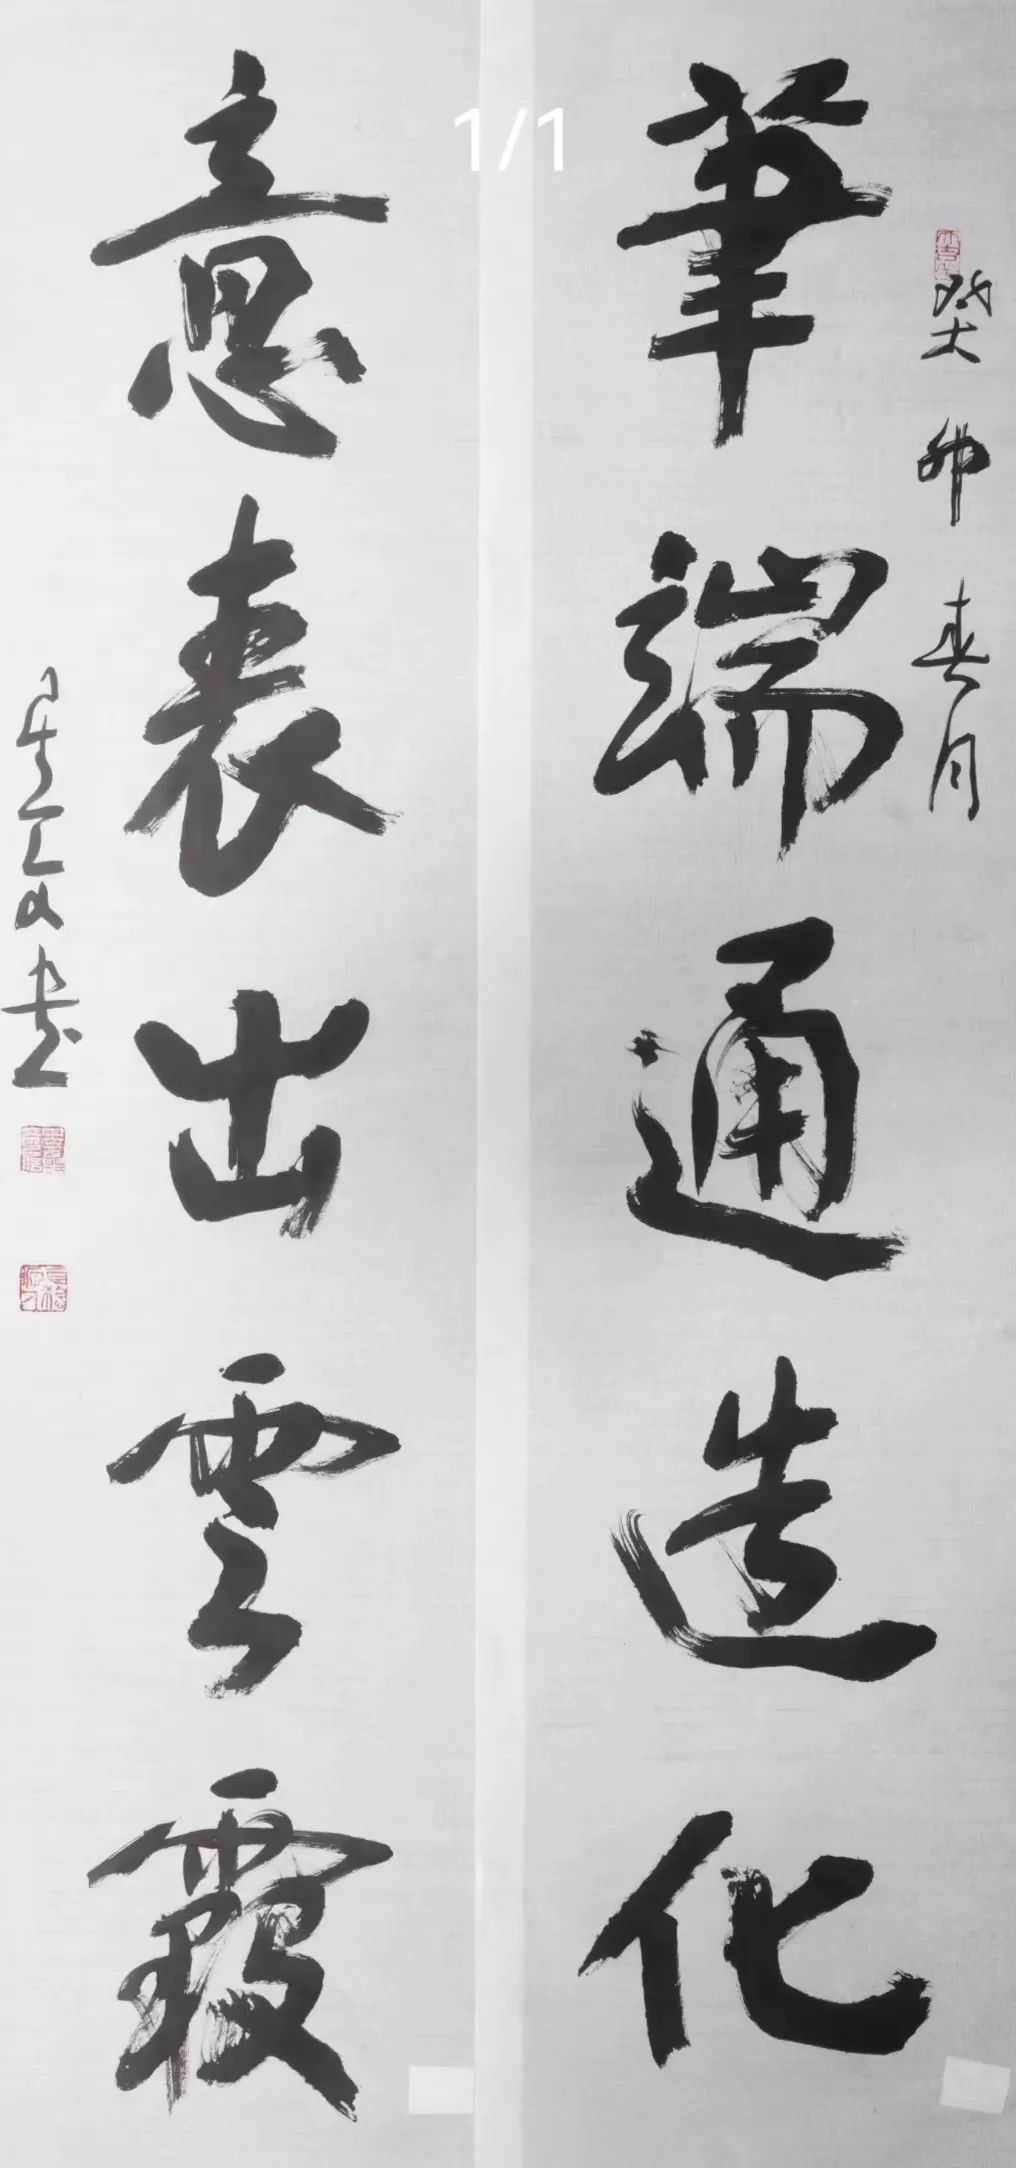 癸卯春月
筆端通造化
意表出雲霞
書
1/1